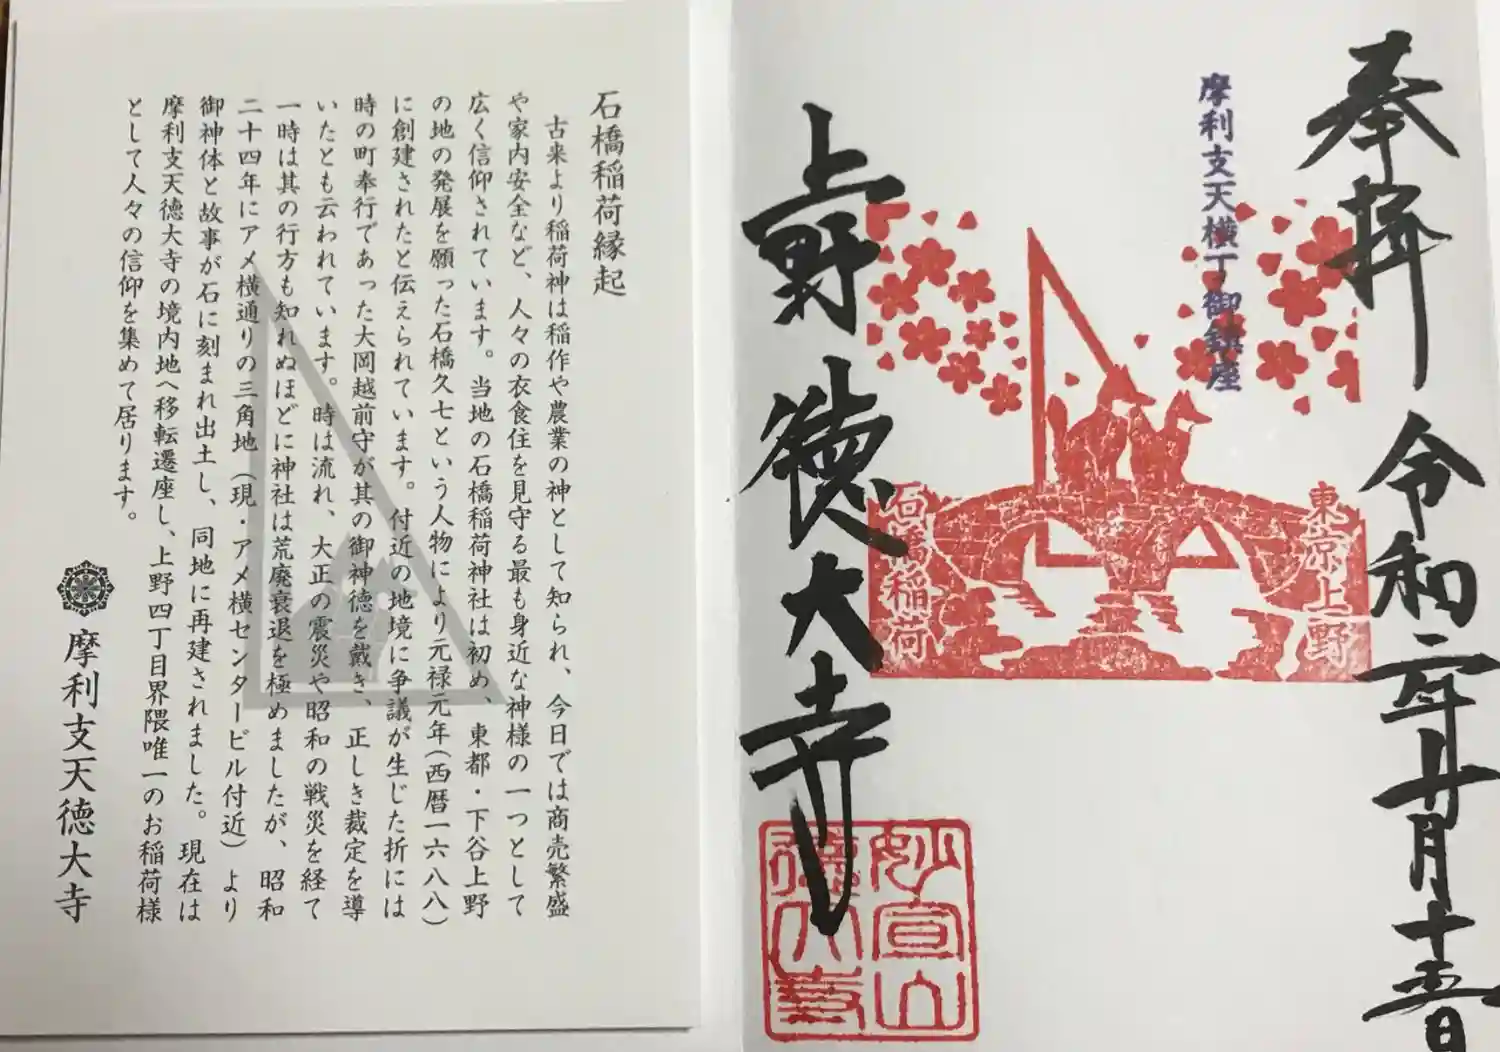 奉拝 令和二年廿月十五日
摩利支天横丁御鎮座
東京上野
石橋稲荷
上野 徳大寺
妙宣山
徳大寺
石橋稲荷縁起
古来より稲荷神は稲作や農業の神として知られ、今日では商売繁盛
や家内安全など、人々の衣食住を見守る最も身近な神様の一つとして
広く信仰されています。当地の石橋稲荷神社は初め、東都・下谷上野
の地の発展を願った石橋久七という人物により元禄元年(西暦一六八八)
に創建されたと伝えられています。付近の地境に争議が生じた折には
時の町奉行であった大岡越前守が其の御神徳を戴き、正しき裁定を導
いたとも云われています。時は流れ、大正の震災や昭和の戦災を経て
一時は其の行方も知れぬほどに神社は荒廃衰退を極めましたが、昭和
二十四年にアメ横通りの三角地(現・アメ横センタービル付近)より
御神体と故事が石に刻まれ出土し、同地に再建されました。現在は
摩利支天徳大寺の境内地へ移転遷座し、上野四丁目界隈唯一のお稲荷様
として人々の信仰を集めて居ります。
摩利支天徳大寺